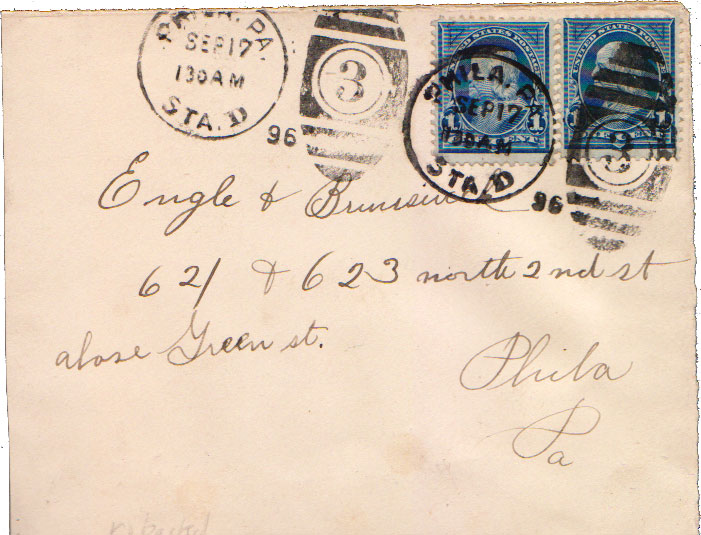 PHILA. PA.
SEP 17
130 AM
STA. D
96
3
UNITED STATES POSTAGE
1 CENT 1
PHILA. PA.
SEP 17
130 AM
STA. D
96
3
UNITED STATES POSTAGE
1
Engle &
621 & 623 north 2nd st
above Green st.
Phila
Pa